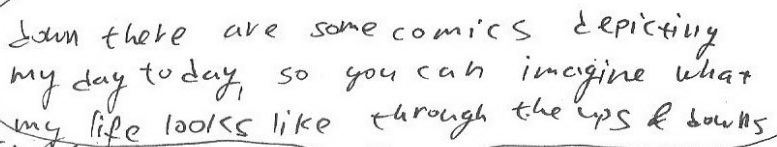 down there are some comics depicting
my day to day, so you can imagine what
my life looks like through the ups & downs